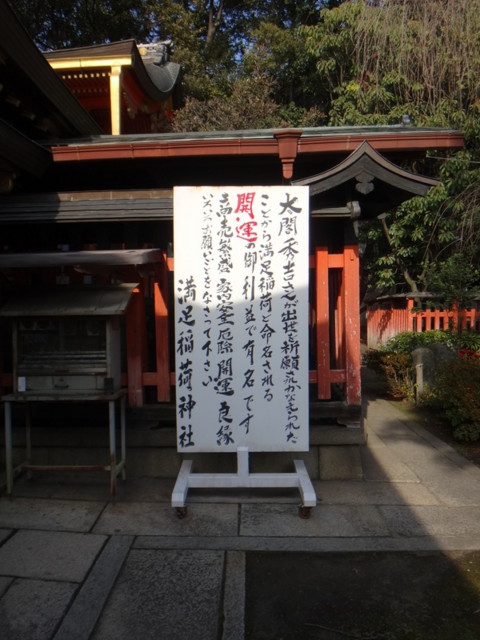 太閤秀吉さんが出世を祈願成就なされた
ことから満足稲荷と命名される
開運の御利益で有名です
商売繁盛 家内安全 厄除 開運 良縁
等々お願いごとをなさって下さい
満足稲荷神社